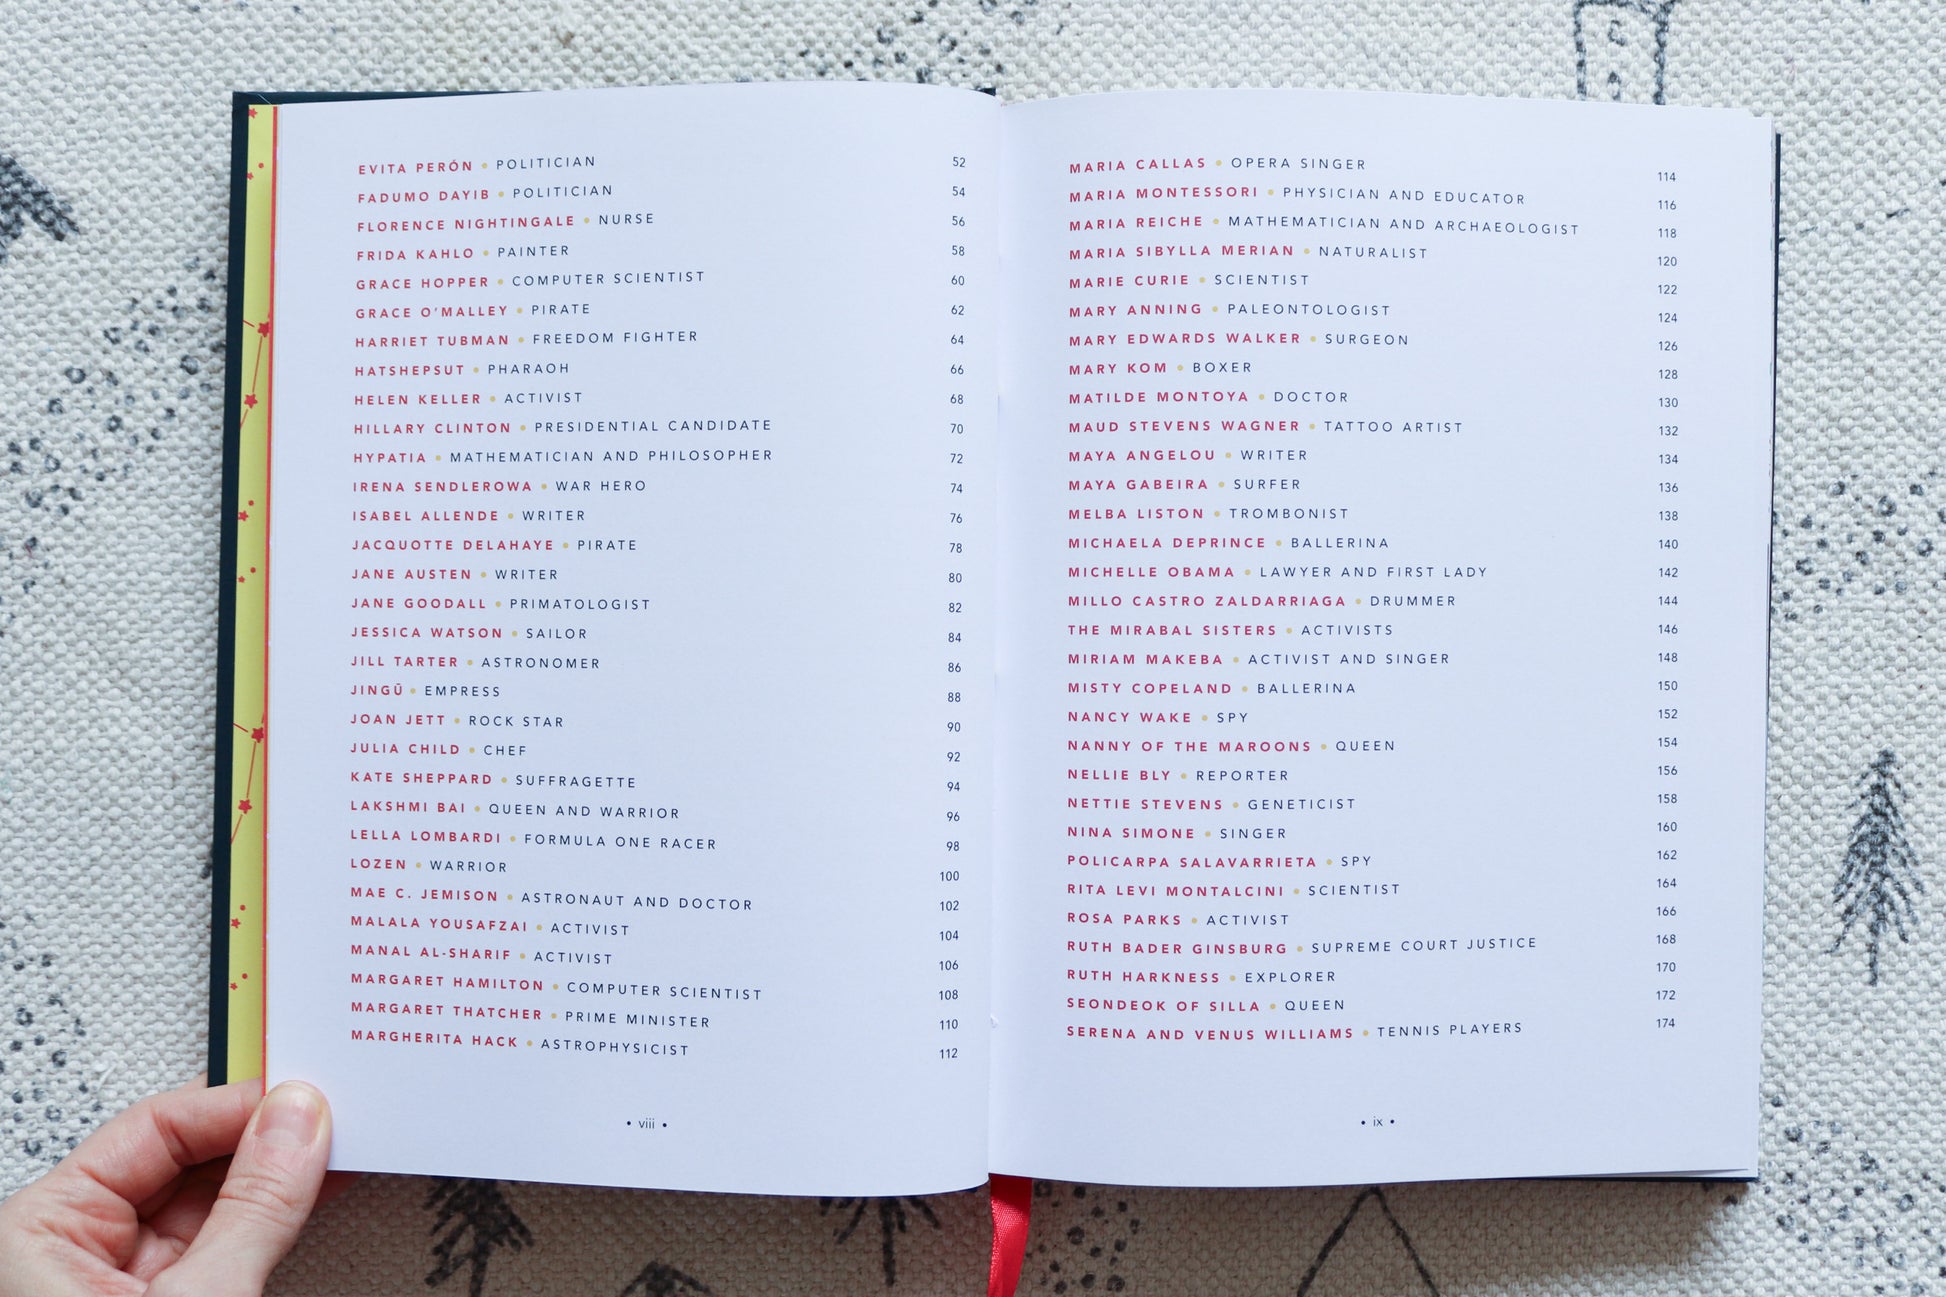 EVITA PERÓN • POLITICIAN 52
FADUMO DAYIB • POLITICIAN 54
FLORENCE NIGHTINGALE • NURSE 56
FRIDA KAHLO • PAINTER 58
GRACE HOPPER • COMPUTER SCIENTIST 60
GRACE O'MALLEY • PIRATE 62
HARRIET TUBMAN • FREEDOM FIGHTER 64
HATSHEPSUT • PHARAOH 66
HELEN KELLER • ACTIVIST 68
HILLARY CLINTON • PRESIDENTIAL CANDIDATE 70
HYPATIA • MATHEMATICIAN AND PHILOSOPHER 72
IRENA SENDLEROWA • WAR HERO 74
ISABEL ALLENDE • WRITER 76
JACQUOTTE DELAHAYE • PIRATE 78
JANE AUSTEN • WRITER 80
JANE GOODALL • PRIMATOLOGIST 82
JESSICA WATSON • SAILOR 84
JILL TARTER • ASTRONOMER 86
JINGŪ • EMPRESS 88
JOAN JETT • ROCK STAR 90
JULIA CHILD • CHEF 92
KATE SHEPPARD • SUFFRAGETTE 94
LAKSHMI BAI • QUEEN AND WARRIOR 96
LELLA LOMBARDI • FORMULA ONE RACER 98
LOZEN • WARRIOR 100
MAE C. JEMISON • ASTRONAUT AND DOCTOR 102
MALALA YOUSAFZAI • ACTIVIST 104
MANAL AL-SHARIF • ACTIVIST 106
MARGARET HAMILTON • COMPUTER SCIENTIST 108
MARGARET THATCHER • PRIME MINISTER 110
MARGHERITA HACK • ASTROPHYSICIST 112
• viii •
MARIA CALLAS • OPERA SINGER 114
MARIA MONTESSORI • PHYSICIAN AND EDUCATOR 116
MARIA REICHE • MATHEMATICIAN AND ARCHAEOLOGIST 118
MARIA SIBYLLA MERIAN • NATURALIST 120
MARIE CURIE • SCIENTIST 122
MARY ANNING • PALEONTOLOGIST 124
MARY EDWARDS WALKER • SURGEON 126
MARY KOM • BOXER 128
MATILDE MONTOYA • DOCTOR 130
MAUD STEVENS WAGNER • TATTOO ARTIST 132
MAYA ANGELOU • WRITER 134
MAYA GABEIRA • SURFER 136
MELBA LISTON • TROMBONIST 138
MICHAELA DEPRINCE • BALLERINA 140
MICHELLE OBAMA • LAWYER AND FIRST LADY 142
MILLO CASTRO ZALDARRIAGA • DRUMMER 144
THE MIRABAL SISTERS • ACTIVISTS 146
MIRIAM MAKEBA • ACTIVIST AND SINGER 148
MISTY COPELAND • BALLERINA 150
NANCY WAKE • SPY 152
NANNY OF THE MAROONS • QUEEN 154
NELLIE BLY • REPORTER 156
NETTIE STEVENS • GENETICIST 158
NINA SIMONE • SINGER 160
POLICARPA SALAVARRIETA • SPY 162
RITA LEVI MONTALCINI • SCIENTIST 164
ROSA PARKS • ACTIVIST 166
RUTH BADER GINSBURG • SUPREME COURT JUSTICE 168
RUTH HARKNESS • EXPLORER 170
SEONDEOK OF SILLA • QUEEN 172
SERENA AND VENUS WILLIAMS • TENNIS PLAYERS 174
• ix •